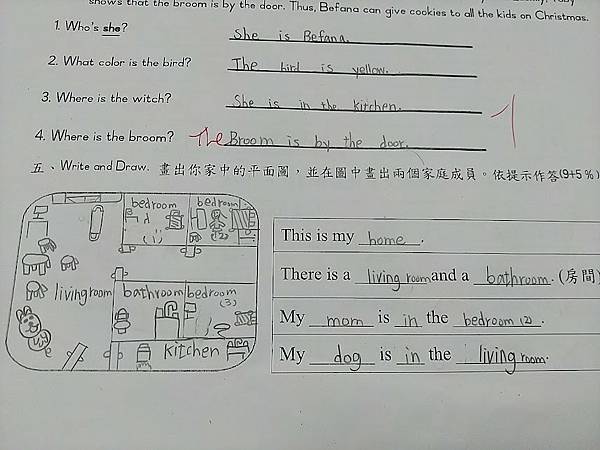 shows that the broom is by the door. Thus, Befana can give cookies to all the kids on Christmas.
1. Who's she?
She is Befana.
2. What color is the bird?
The bird is yellow.
3. Where is the witch?
She is in the kitchen.
4. Where is the broom?
The Broom is by the door.
五、Write and Draw. 畫出你家中的平面圖，並在圖中畫出兩個家庭成員。依提示作答(9+5%)
bedroom
(1)
bedroom
(2)
living room
bathroom
bedroom
(3)
kitchen
This is my home.
There is a living room and a bathroom. (房間)
My mom is in the bedroom (2).
My dog is in the living room.